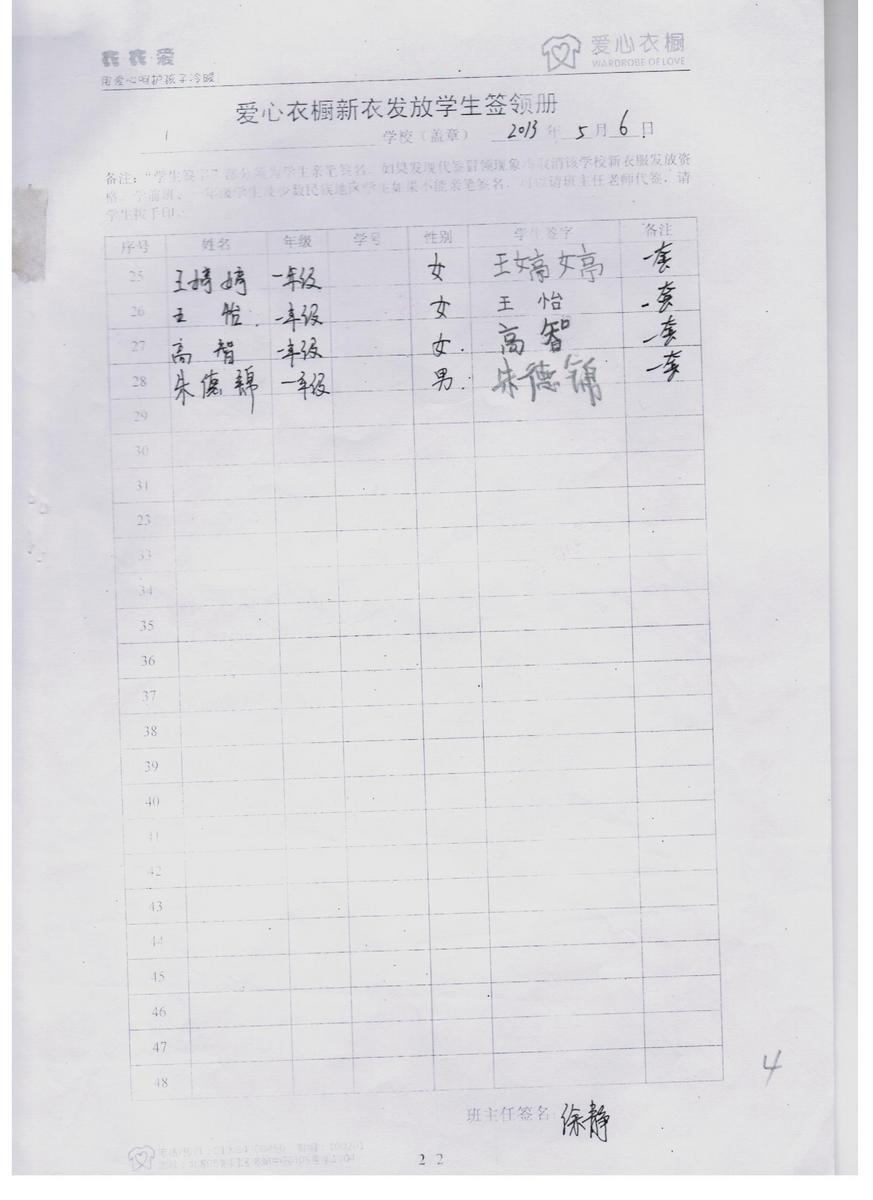 衣衣·爱
用爱心呵护孩子冷暖
爱心衣橱
WARDROBE OF LOVE
爱心衣橱新衣发放学生签领册
学校（盖章） 2013 年 5 月 6 日
备注：“学生签字”部分须为学生亲笔签名，如果发现代签冒领现象将取消该学校新衣服发放资
格。学前班、一年级学生及少数民族地区学生如果不能亲笔签名，可以请班主任老师代签，请
学生按手印。
序号 姓名 年级 学号 性别 学生签字 备注
25 王婷婷 一年级 女 王婷婷 一套
26 王怡 一年级 女 王怡 一套
27 高智 一年级 女 高智 一套
28 朱德锦 一年级 男 朱德锦 一套
29
30
31
23
33
34
35
36
37
38
39
40
41
42
43
44
45
46
47
48
4
班主任签名 徐静
2 2